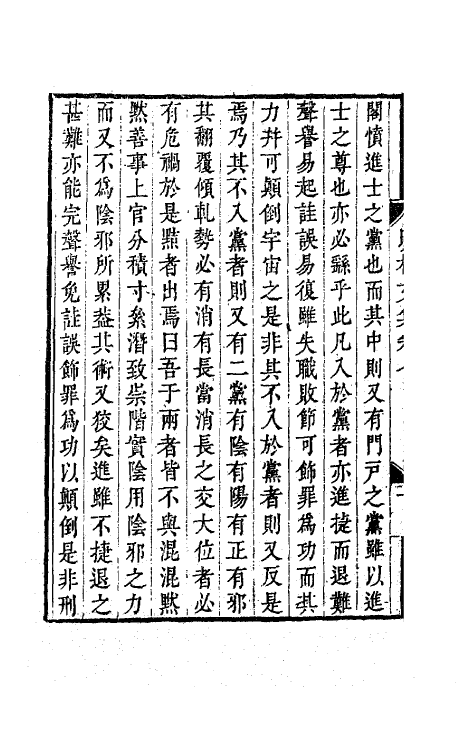 閣憤進士之黨也而其中則又有門戸之黨雖以進
士之尊也亦必繇乎此凡入於黨者亦進捷而退難
聲譽易起詿誤易復雖失職敗節可飾罪爲功而其
力幷可顛倒宇宙之是非其不入於黨者則又反是
焉乃其不入黨者則又有二黨有陰有陽有正有邪
其翻覆傾軋勢必有消有長當消長之交大位者必
有危禍於是點者出焉曰吾于兩者皆不與混混黙
黙善事上官分積寸絫潛致崇階實陰用陰邪之力
而又不爲陰邪所累葢其術又狡矣進雖不捷退之
甚難亦能完聲譽免詿誤飾罪爲功以顛倒是非刑